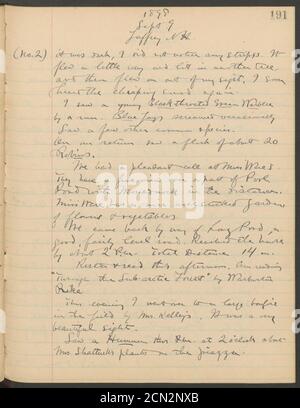 1898
Sept 9
Jaffrey N.H.
191
(No. 2) it was dark, I did not notice any stripes. It
flew a little way and lit in another tree,
and then flew on out of my sight. I soon
heard the cheeping sound again.
I saw a young Black-throated Green Warbler
by a run. Blue Jays screamed occasionally
Saw a few other common species.
On our return saw a flock of about 20
Robins.
We had a pleasant call at Miss Ware's
They have a view of part of Pool
Pond with Monadnock in the distance.
Miss Ware has an garden
of flowers & vegetables.
We came back by way of Long Pond a
good, fairly level road. Reached the house
by about 2 P.m. Total Distance 14 m.
Rested & read this afternoon. Am reading
"Through the Subarctic Forest" by Warburton
Pike
This evening I went over to a large bonfire
in the field by Mr. Kelley's. It was a very
beautiful sight.
Saw a Humming Bird at 2 o'clock about
Mrs Shattuck's plants on the piazza.
alamy
Image ID: 2CN2NXB
www.alamy.com